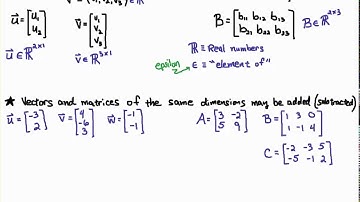 v = (v₁, v₂, v₃) ∈ ℝ
u⃗ = [u₁ u₂] v⃗ = [v₁ v₂ v₃] B = [b₁₁ b₁₂ b₁₃ b₂₁ b₂₂ b₂₃] B ∈ ℝ²ˣ³
u⃗ ∈ ℝ²ˣ¹ v⃗ ∈ ℝ³ˣ¹ ℝ ≡ Real numbers
epsilon → ∈ ≡ "element of"
★ Vectors and matrices of the same dimensions may be added (subtracted)
u⃗ = [-3 2] v⃗ = [4 -6 3] w⃗ = [-1 -1] A = [3 -2 5 9] B = [1 3 0 1 -1 4]
C = [-2 -3 5 -5 -1 2]